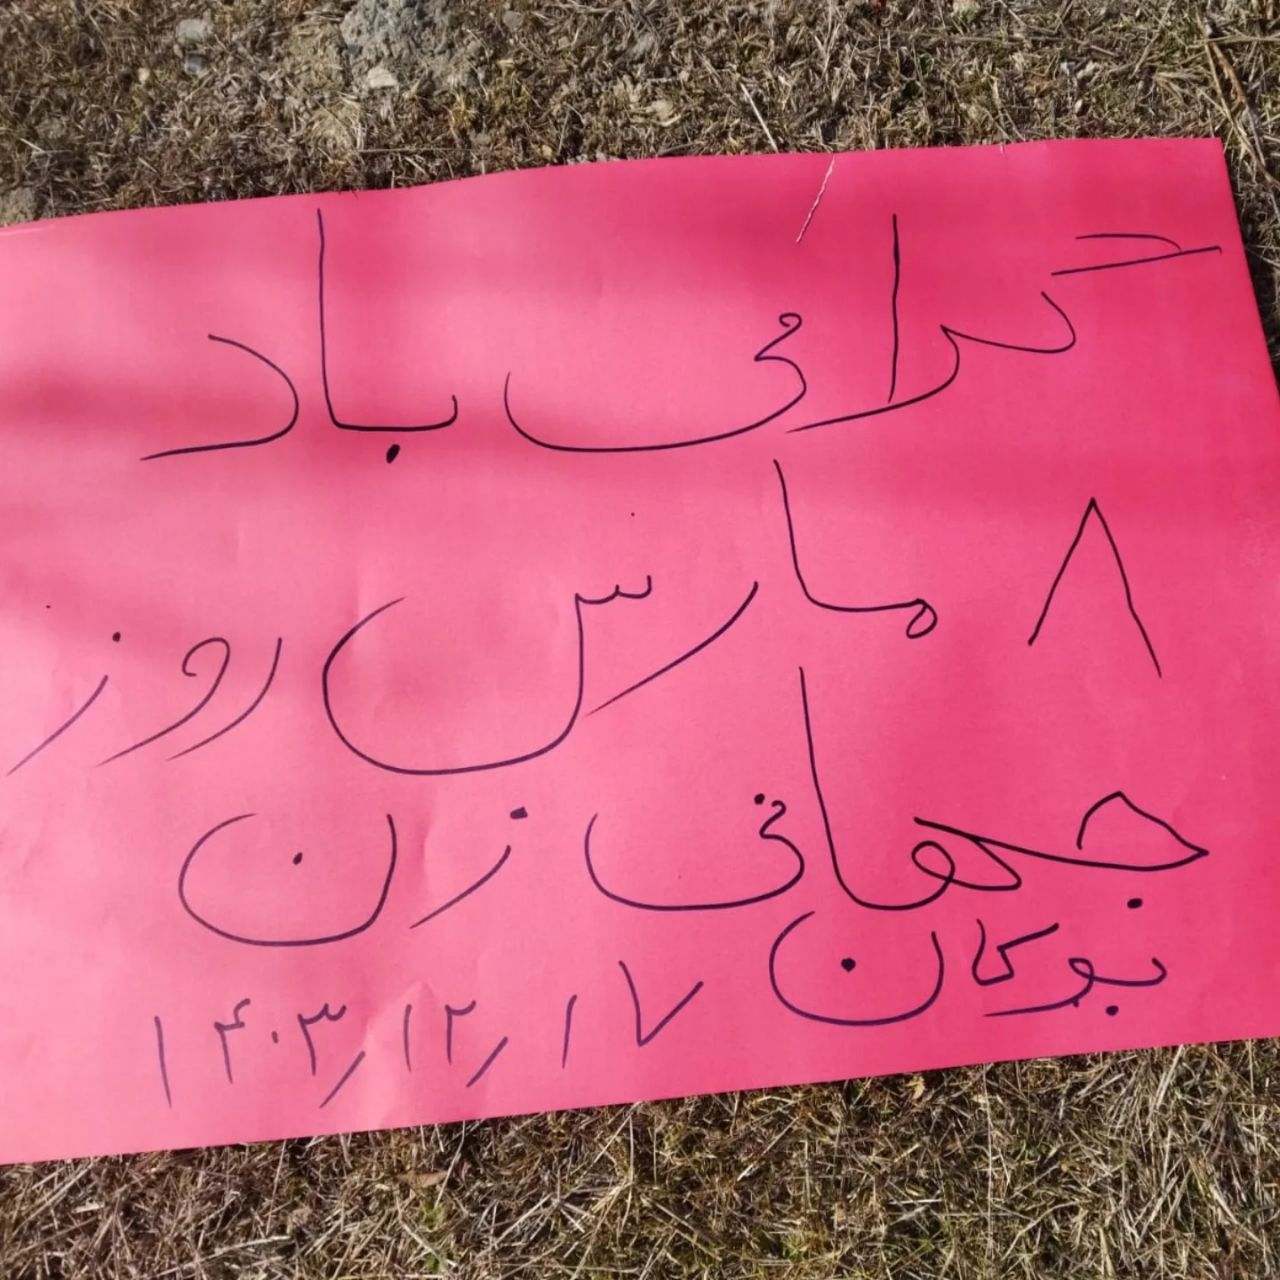 گرامی باد
۸ مارس روز
جهانی زن
بوکان
۱۴۰۳/۱۲/۱۷